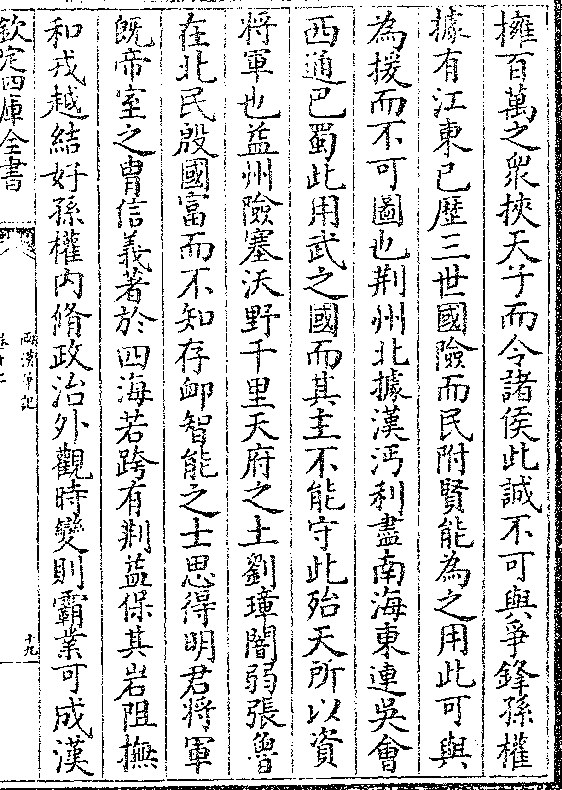 擁百萬之衆挾天子而令諸侯此誠不可與爭鋒孫權
據有江東已歴三世國險而民附賢能為之用此可與
為援而不可圖也荆州北據漢沔利盡南海東連吳會
西通巴蜀此用武之國而其主不能守此殆天所以資
將軍也益州險塞沃野千里天府之土劉璋闇弱張魯
在北民殷國富而不知存卹智能之士思得明君將軍
既帝室之胄信義著於四海若跨有荆益保其岩阻撫
和戎越結好孫權内脩政治外觀時變則霸業可成漢
欽定四庫全書
兩漢筆記
十九